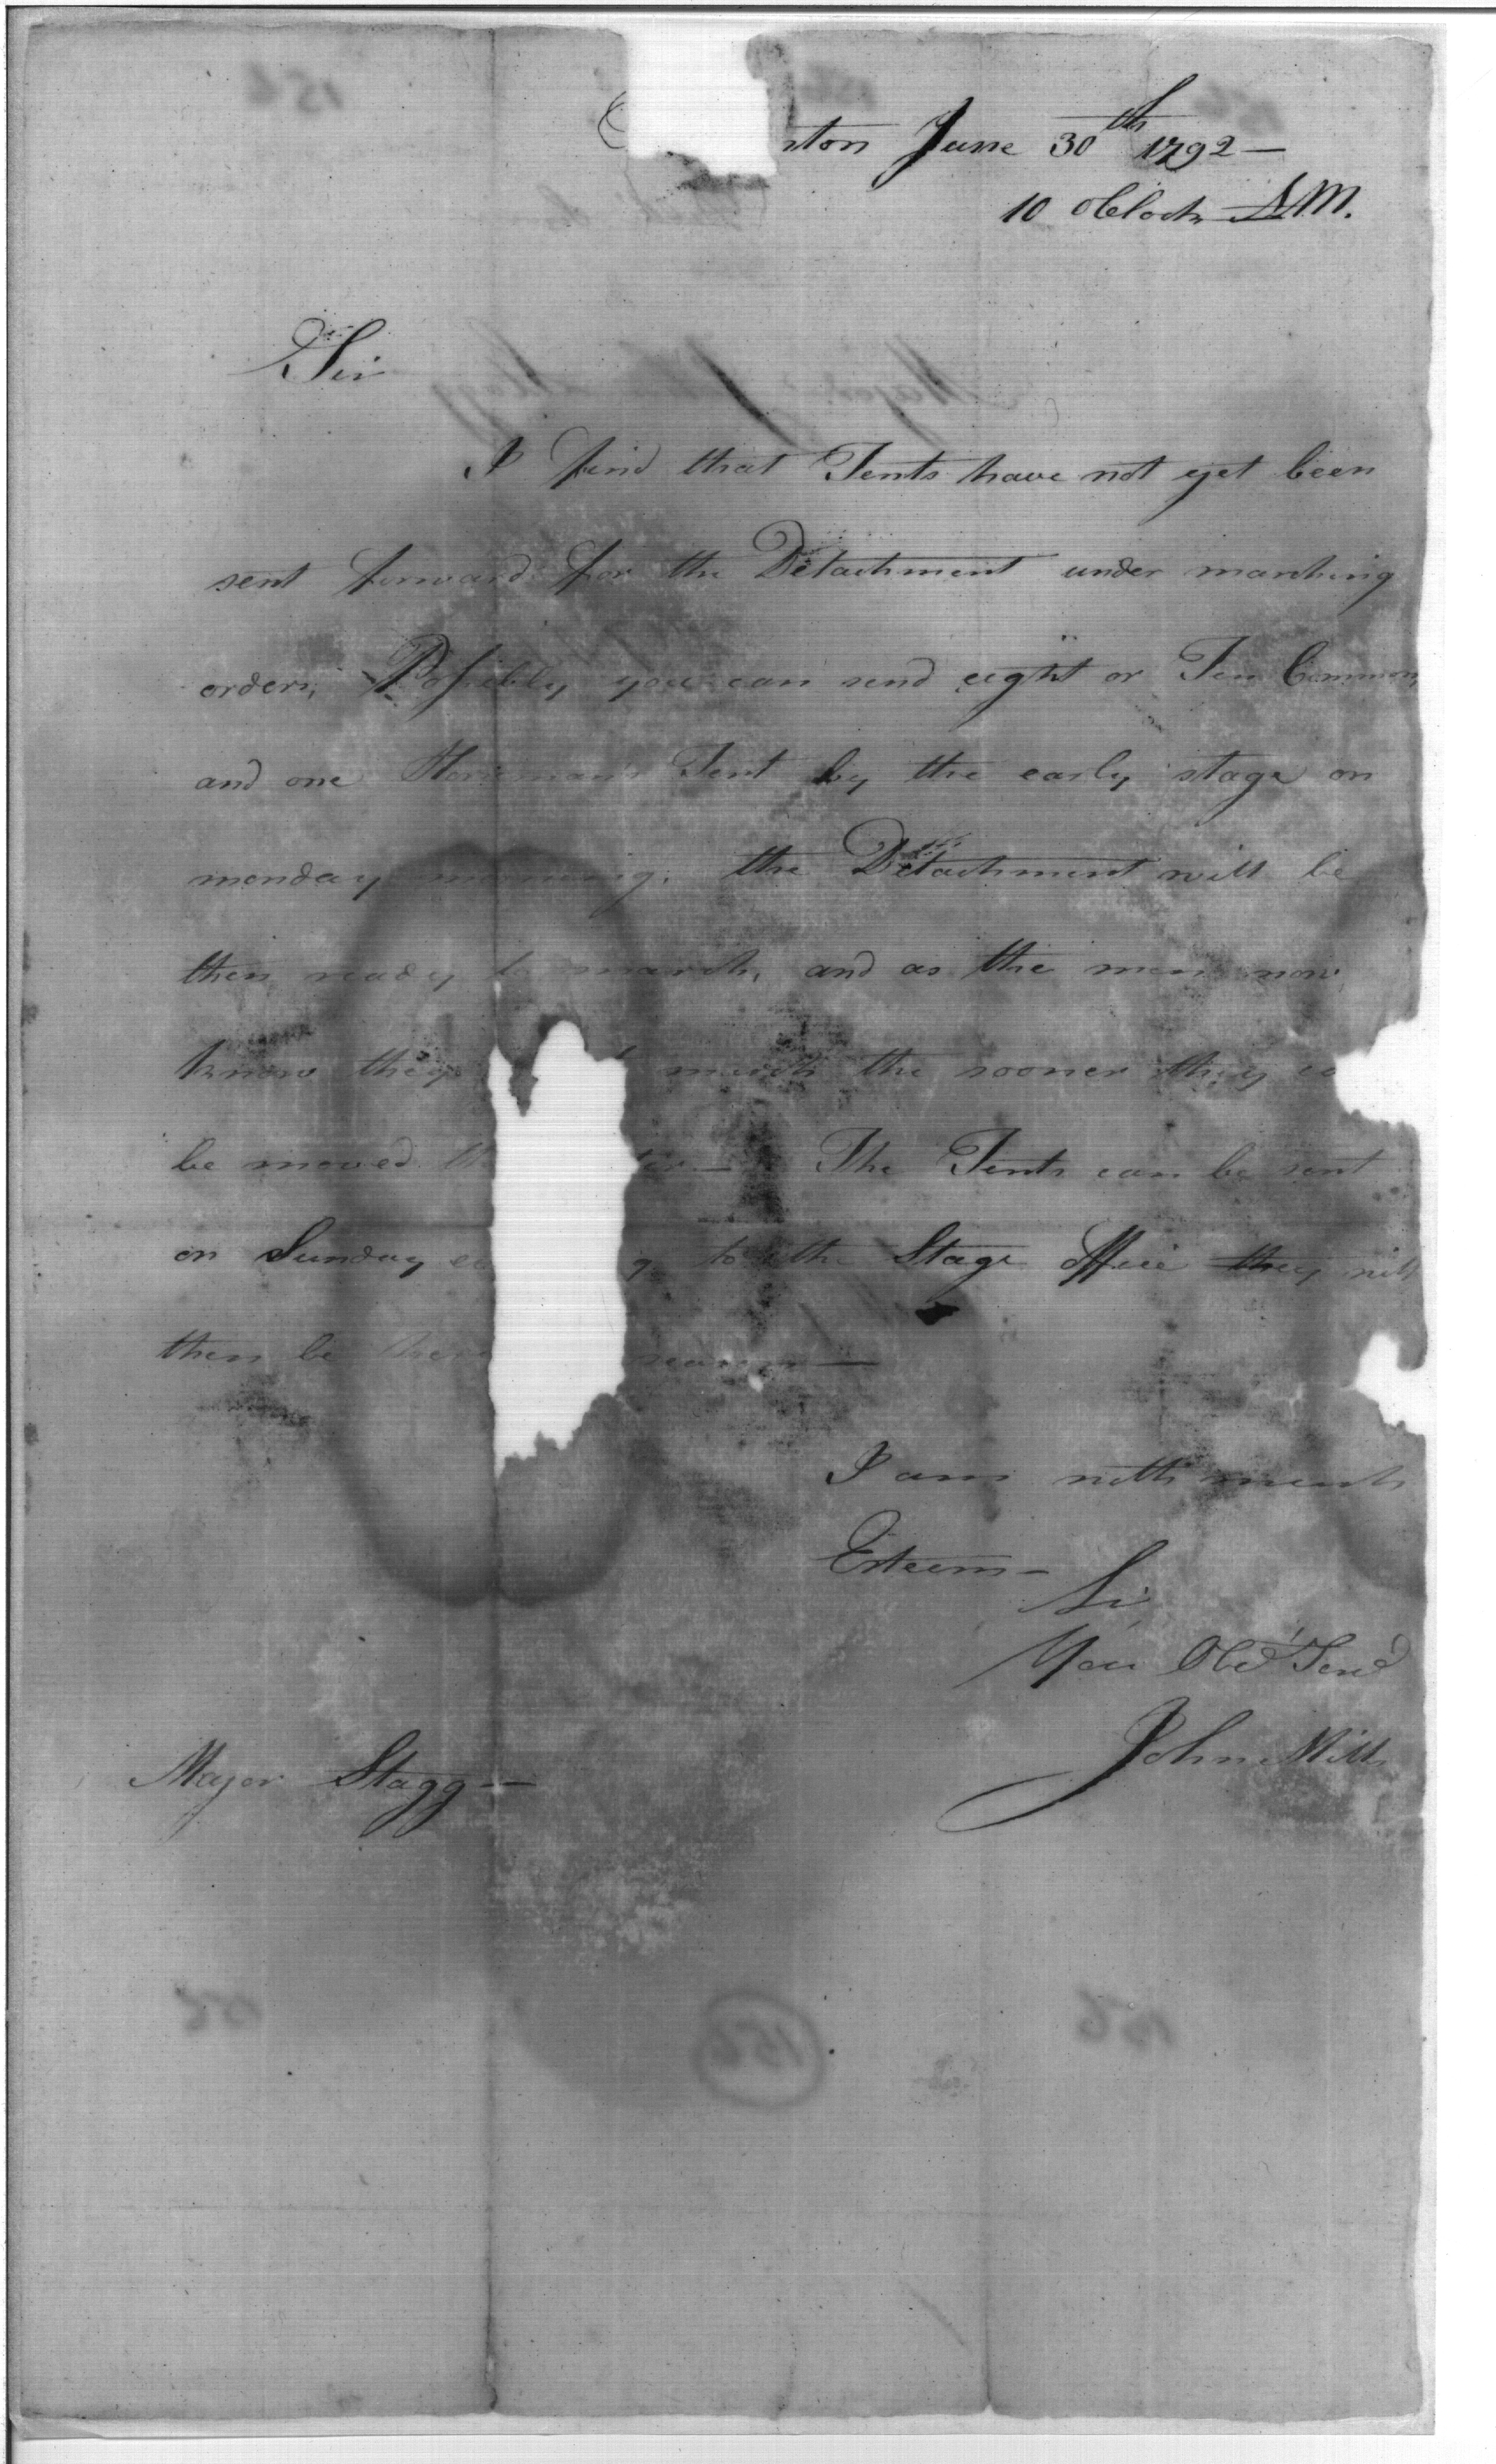 nton June 30th 1792 —
10 oClock AM.
Sir
I find that Tents have not yet been
sent forward for the Detachment under marching
orders, Possibly you can send eight or Ten Common,
and one Horseman's Tent by the early stage on
monday morning. the Detachment will be
then ready to march, and as the men now
know they march the sooner they
be moved the The Tents can be sent
on Sunday to the Stage Office they will
then be there
I am with much
Esteem —
Sir
Your Obed Serv
John Mills
Major Stagg —
156